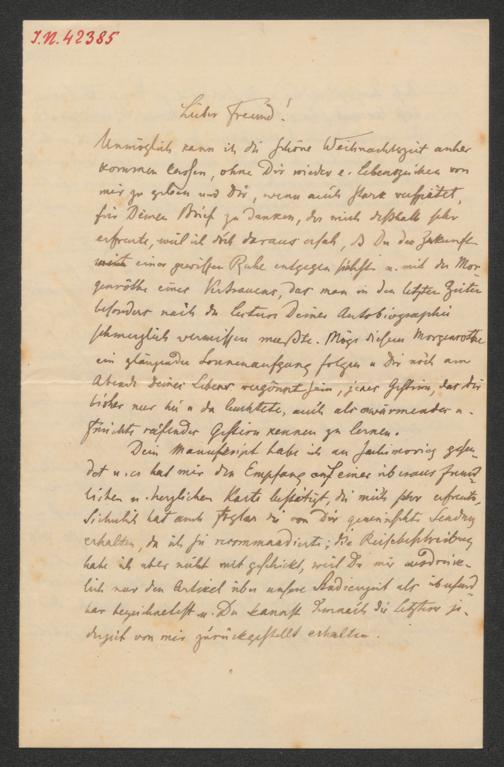 I.N. 42385
Lieber Freund!
Unmöglich kann ich die schöne Weihnachtszeit anher
kommen lassen, ohne Dir wieder e. Lebenszeichen von
mir zu geben und Dir, wenn auch stark verspätet,
für Deinen Brief zu danken, der mich deßhalb sehr
erfreute, weil ich doch daraus ersah, ß Du der Zukunft
mit einer gewissen Ruhe entgegen siehst u. mit der Mor
genröthe eines Vertrauens, das man in den letzten Zeiten
besonders nach der lecture Deiner Autobiographie
schmerzlich vermissen mußte. Möge diesem Morgenrothe
ein glänzender Sonnenaufgang folgen u Dir noch am
Abende deines Lebens vergönnt sein, jenes Gestirn, das Dir
bisher nur hie u da leuchtete, auch als erwärmendes u.
Früchte reifendes Gestirn kennen zu lernen.
Dein Manuskript habe ich an gesen
det u. er hat mir den Empfang auf einer überaus freund
lichen u. herzlichen Karte bestätigt, die mich sehr erfreute.
Sicherlich hat auch die von Dir gewünschte Sendung
erhalten, da ich sie recommandirte; die Reisebeschreibung
habe ich aber nicht mit geschickt, weil Du mir ausdrück-
lich nur den Artikel über unsere Studienzeit als
bar bezeichnetest u. Du kannst demnach die letztere je-
derzeit von mir zurückgestellt erhalten.